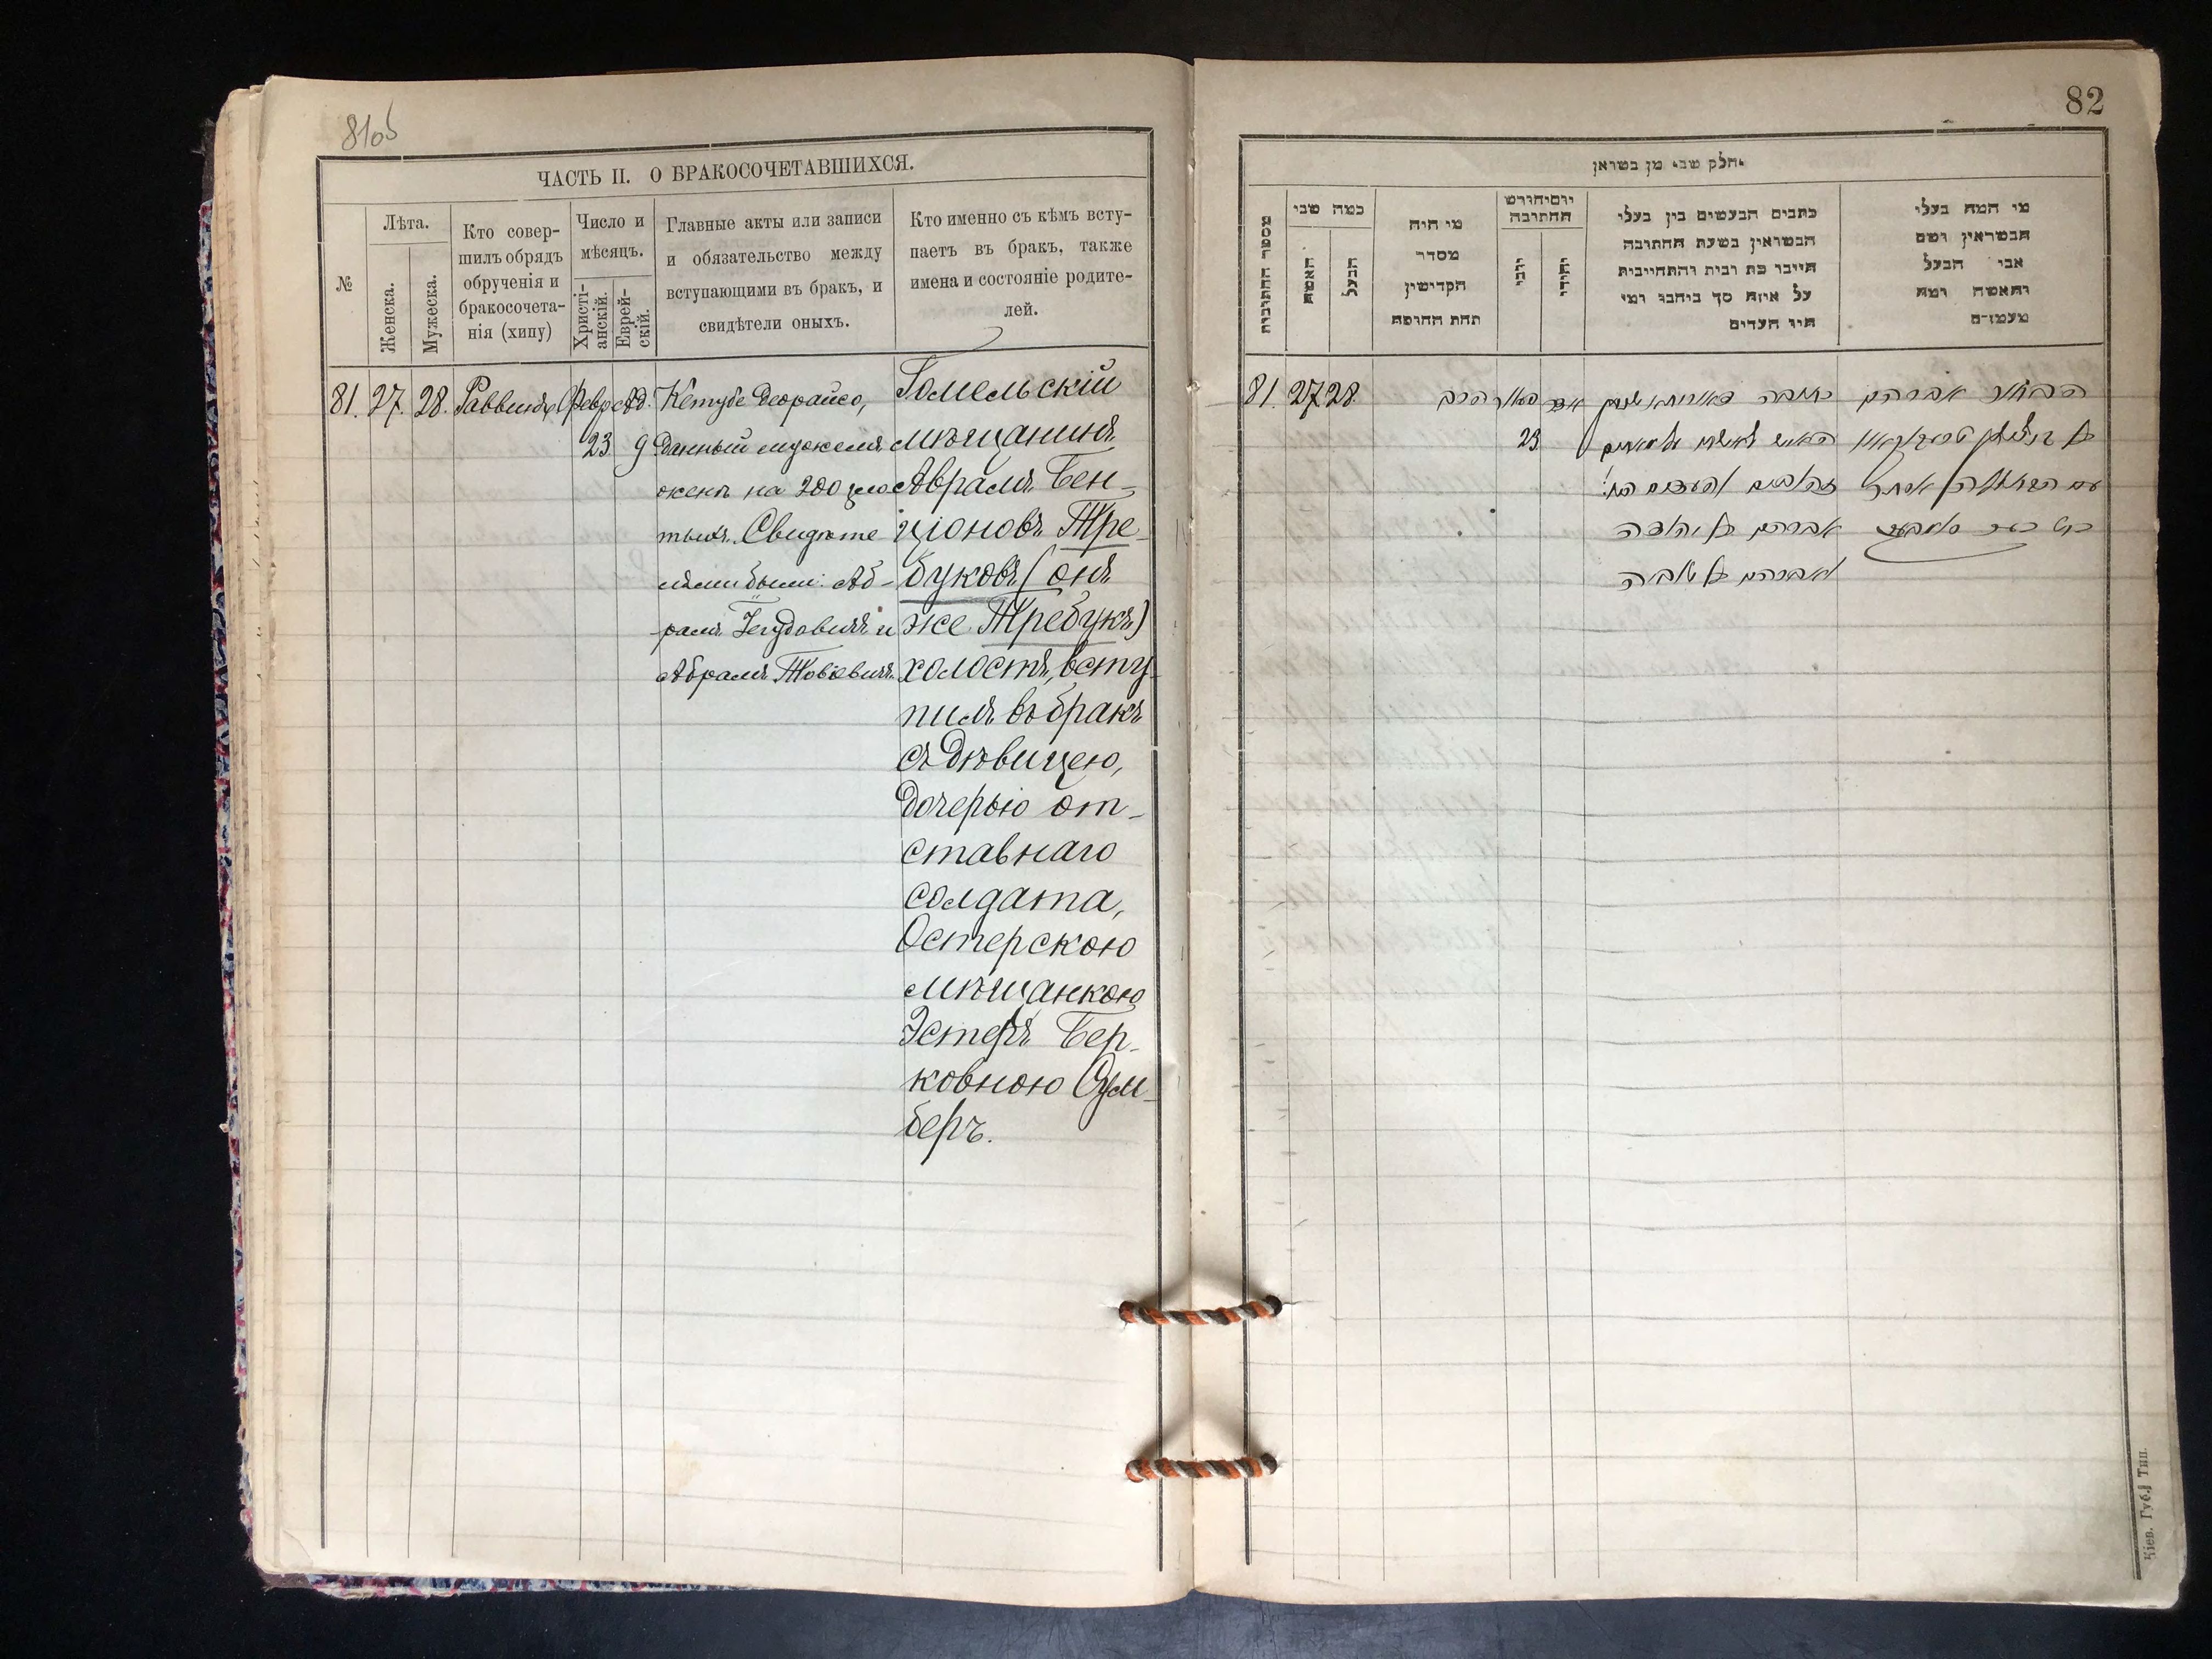 81об
ЧАСТЬ II. О БРАКОСОЧЕТАВШИХСЯ.
№
Лѣта.
Женска.
Мужеска.
Кто совер-
шилъ обрядъ
обрученія и
бракосочета-
нія (хипу)
Число и
мѣсяцъ.
Христі-
анскій.
Еврей-
скій.
Главные акты или записи
и обязательство между
вступающими въ бракъ, и
свидѣтели оныхъ.
Кто именно съ кѣмъ всту-
паетъ въ бракъ, также
имена и состояніе родите-
лей.
81. 27. 28. Раввинъ Февр. Ад.
23 9
Кетубе Деорайсо,
данный мужемъ
женѣ на 200 зло
тыхъ. Свидѣте
лями были: Аб-
рамъ Іегудовичъ и
Абрамъ Товіевичъ.
Гомельскій
мѣщанинъ
Абрамъ Бен-
ціоновъ Тре-
буковъ (онъ
же Требукъ)
холостъ, всту-
пилъ въ бракъ
съ дѣвицею,
дочерью от-
ставнаго
солдата,
Остерскою
мѣщанкою
Эстеръ Бер-
ковною Оум-
беръ.
82
חלק שני מן בשואין
מספר החתונות
כמה שני
האשה
הבעל
מי היה
מסדר
הקדישין
תחת החופה
יום וחודש
החתונה
יוני
יהודי
כתבים הנעשים בין בעלי
הנשואין בשעת החתונה
על איזה סך
היו העדים
מי המה בעלי
הנשואין ושם
אבי הבעל
והאשה ומה
מעמדם
81. 27 28 הרב
23
אברהם בן יהודה
ואברהם בן טוביה
Кіев. Губ. Тип.